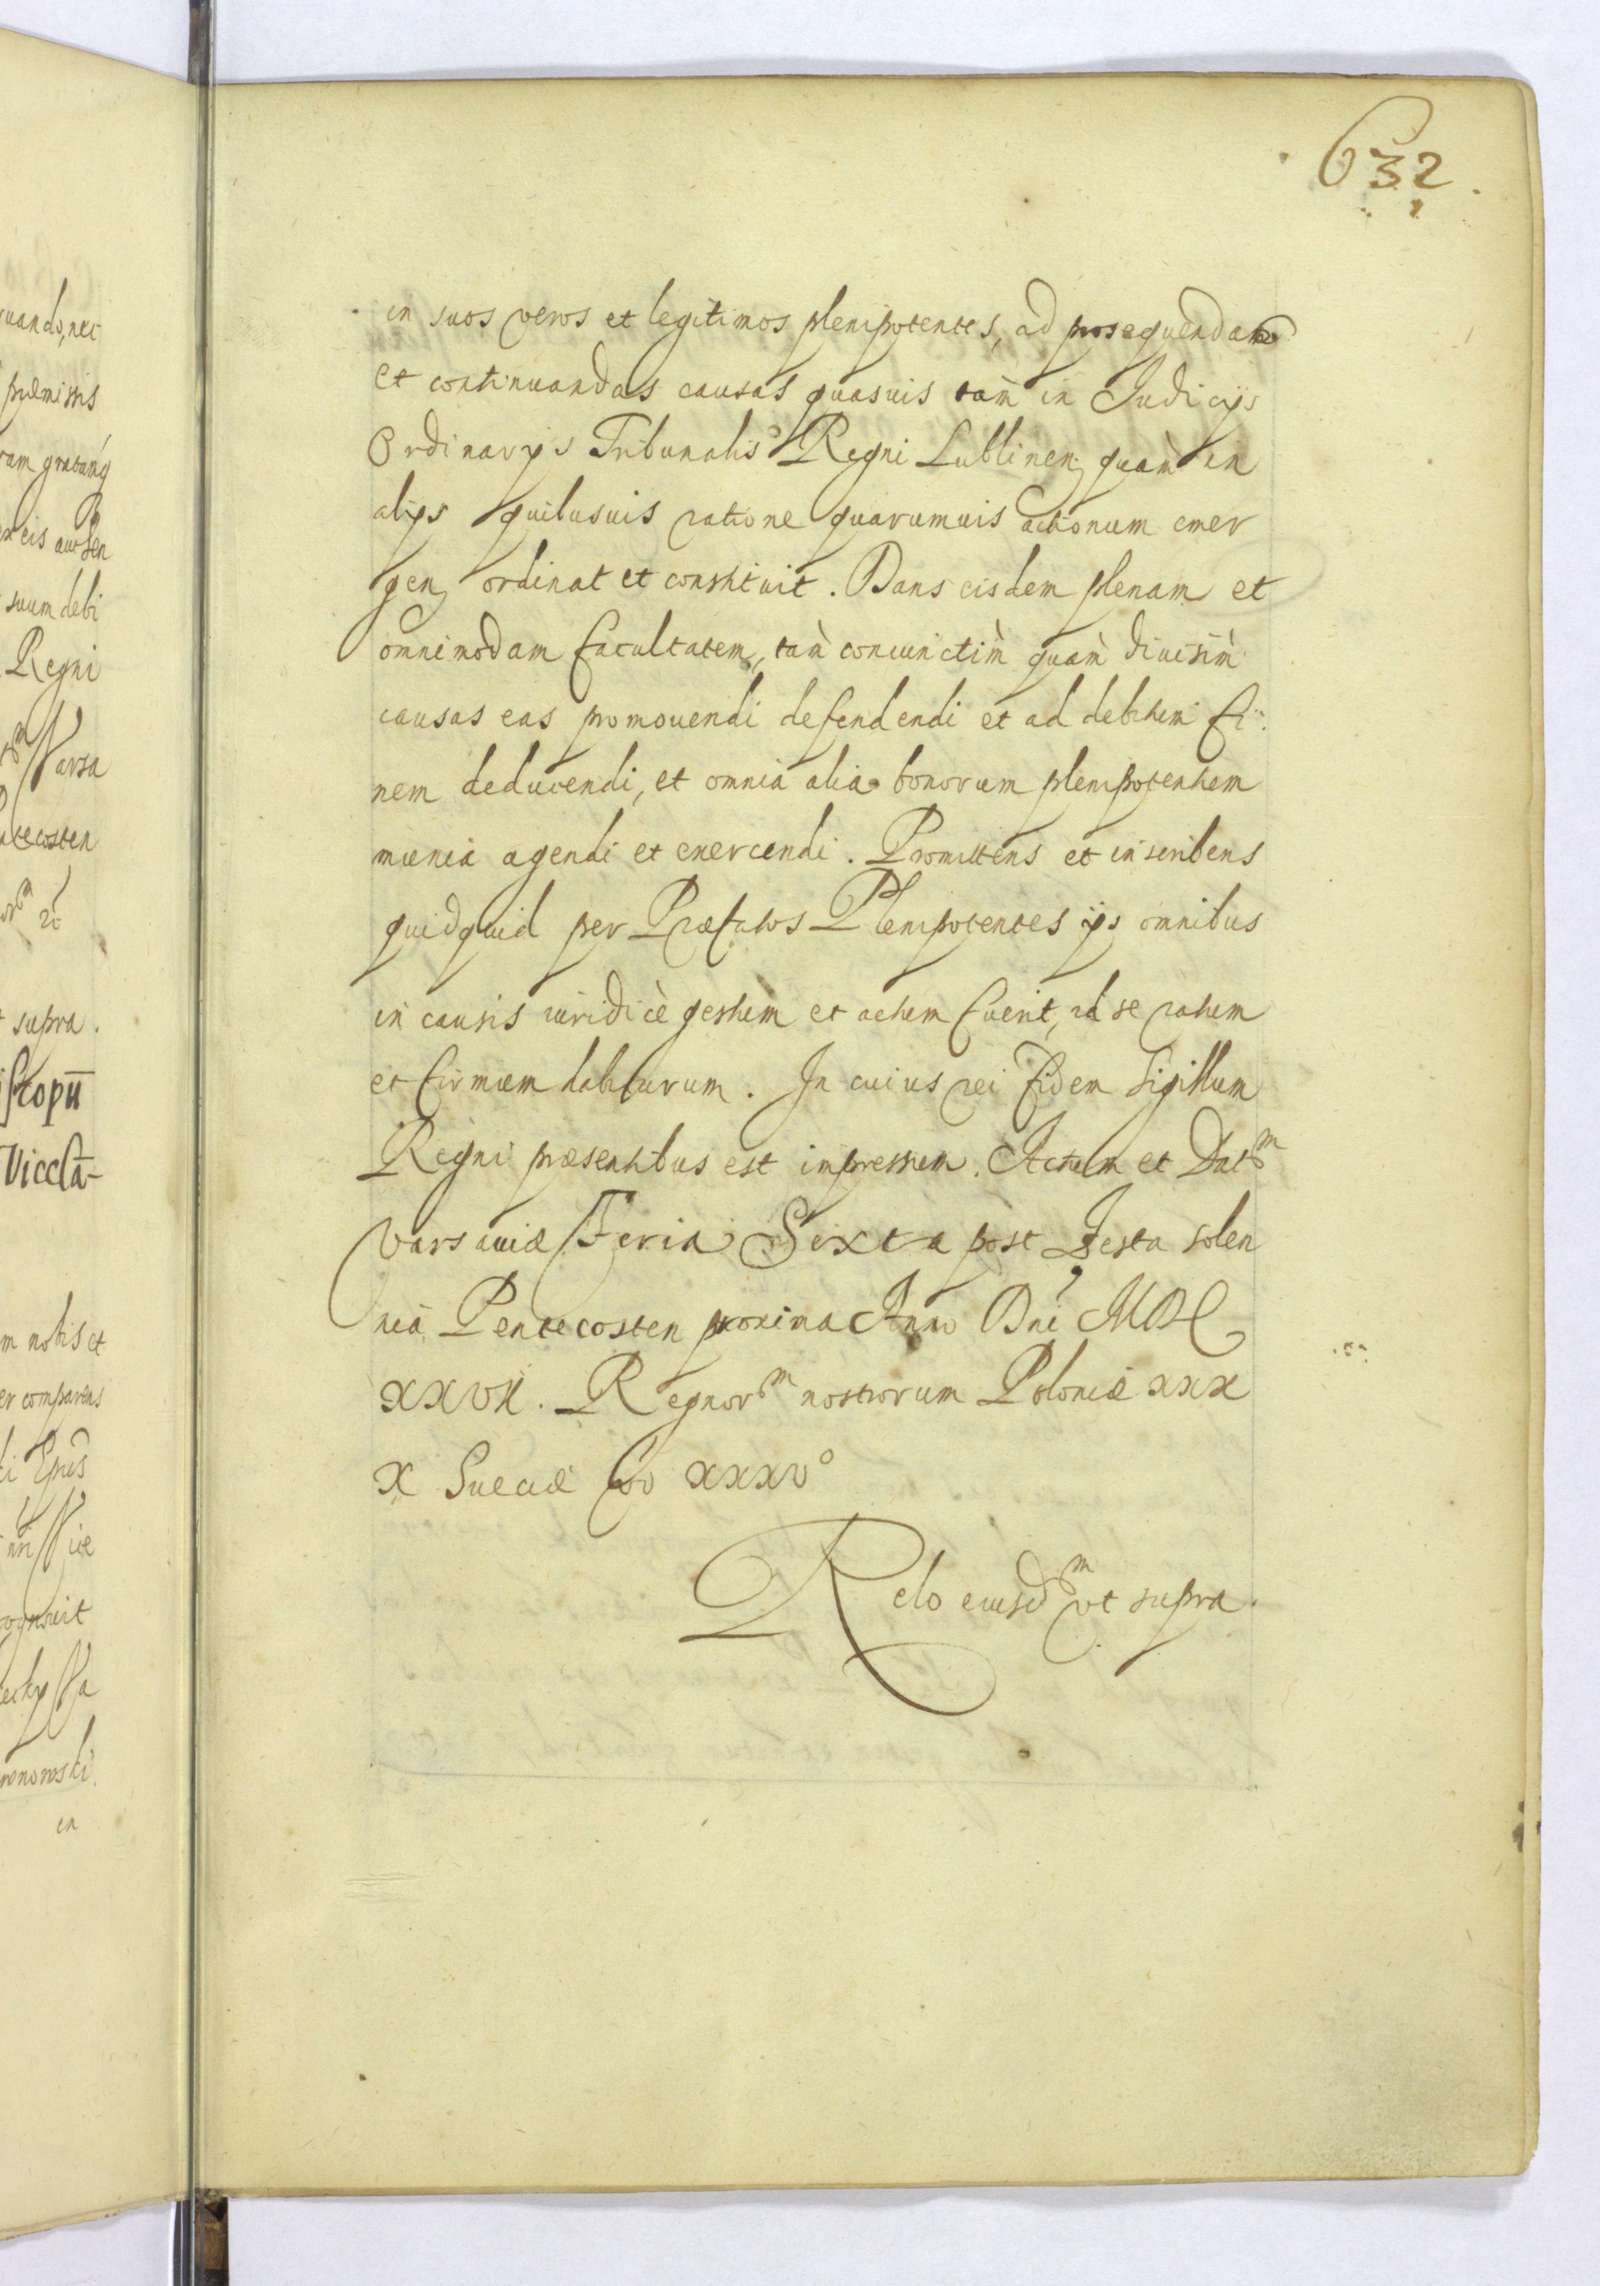 632.
in suos veros et legitimos plenipotentes, ad prosequendam
et continuandas causas quasuis tam̀ in Judicijs
Ordinarijs Tribunalis Regni Lublinen, quam̀ in
alijs quibusuis ratione quarumuis actionum emer
gen, ordinat et constituit. Dans eisdem plenam et
omnimodam facultatem, tam̀ coniunctim̀ quam̀ diuisim̀
causas eas promouendi defendendi et ad debitum fi
nem deducendi, et omnia alia bonorum plenipotentum
munia agendi et exercendi. Promittens et inscribens
quidquid per Præfatos Plenipotentes ijs omnibus
in causis iuridicè gestum et actum fuerit, id se ratum
et firmum habiturum. In cuius rei fidem Sigillum
Regni præsentibus est impressum. Actum et Datm
Varsauiæ Feria Sexta post Festa solen
nia Pentecosten proxima Anno Dni MDC
XXVII. Regnorm nostrorum Poloniæ xxx
x Sueciæ vo xxxvo
Relo eiusdm vt supra.
uando, nec
præmissis
ram gratanq
eis aut Sen
suum debi
Regni
Varsa
ntecosten
supra.
scopū
Viccla-
m nobis et
er comparens
Epūs
Vice
cognouit
Va
onowski.
in